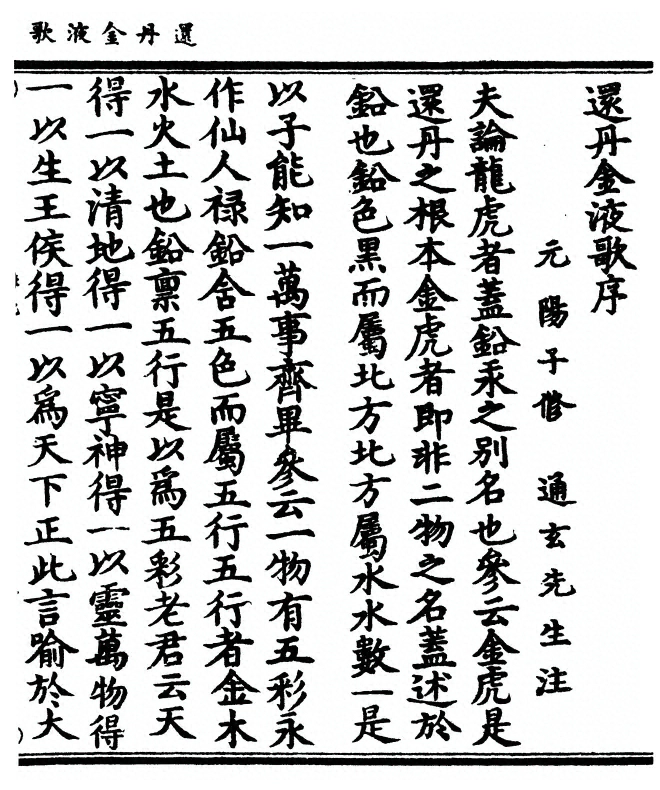 還丹金液歌
還丹金液歌序
元陽子脩 通玄先生注
夫論龍虎者蓋鉛汞之別名也參云金虎是
還丹之根本金虎者即非二物之名蓋述於
鉛也鉛色黑而屬北方北方屬水水數一是
以子能知一萬事齊畢參云一物有五彩永
作仙人祿鉛含五色而屬五行五行者金木
水火土也鉛禀五行是以爲五彩老君云天
得一以清地得一以寧神得一以靈萬物得
一以生王侯得一以爲天下正此言喻於大